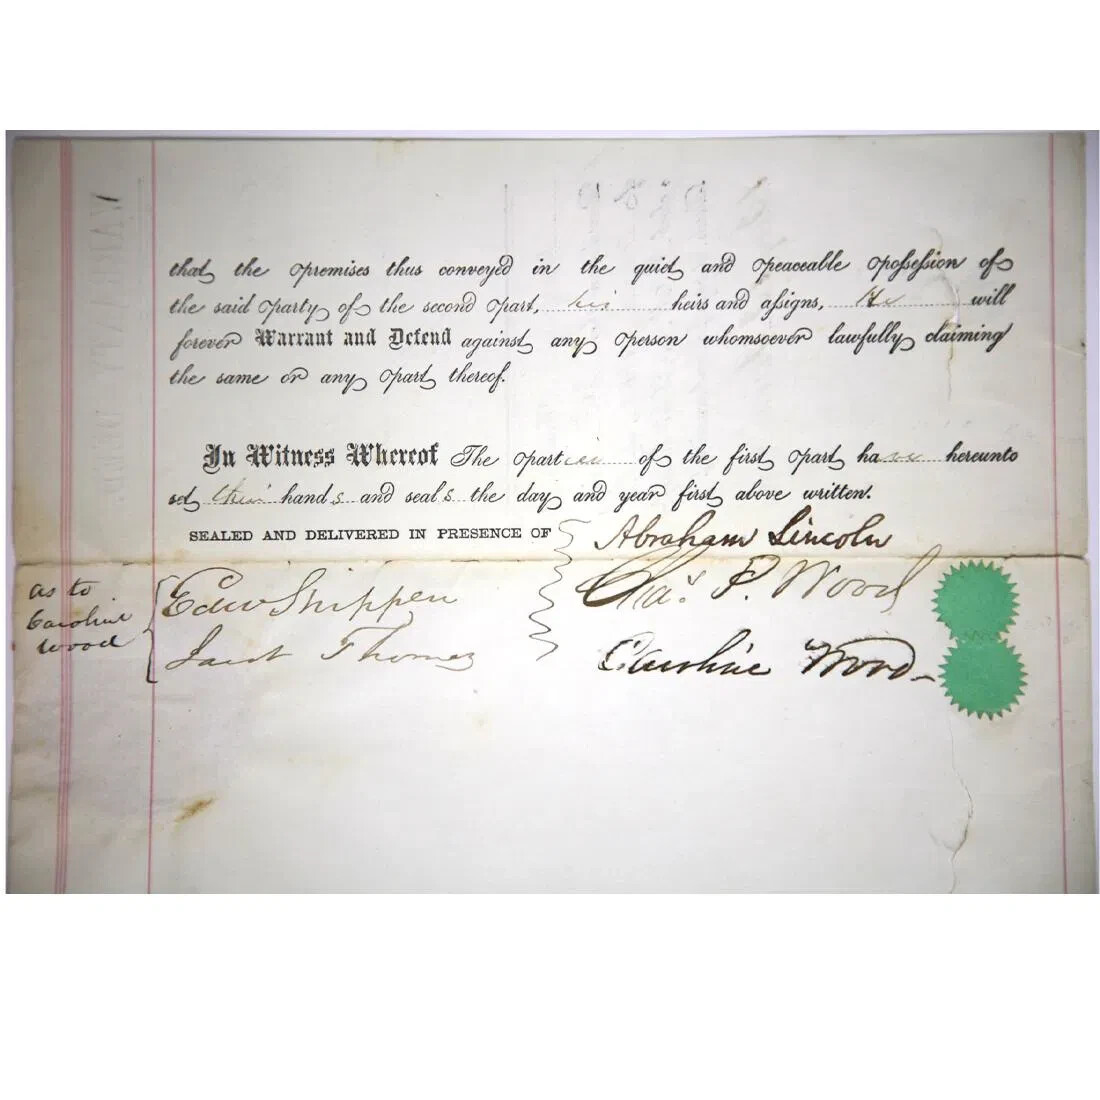 that the premises thus conveyed in the quiet and peaceable possession of
the said party of the second part, his heirs and assigns, He will
forever Warrant and Defend against any person whomsoever lawfully claiming
the same or any part thereof.
In Witness Whereof The parties of the first part have hereunto
set their hands and seals the day and year first above written.
SEALED AND DELIVERED IN PRESENCE OF
Abraham Lincoln
Chas. P. Wood
Caroline Wood
as to
Caroline
Wood
Edw Shippen
Thomas